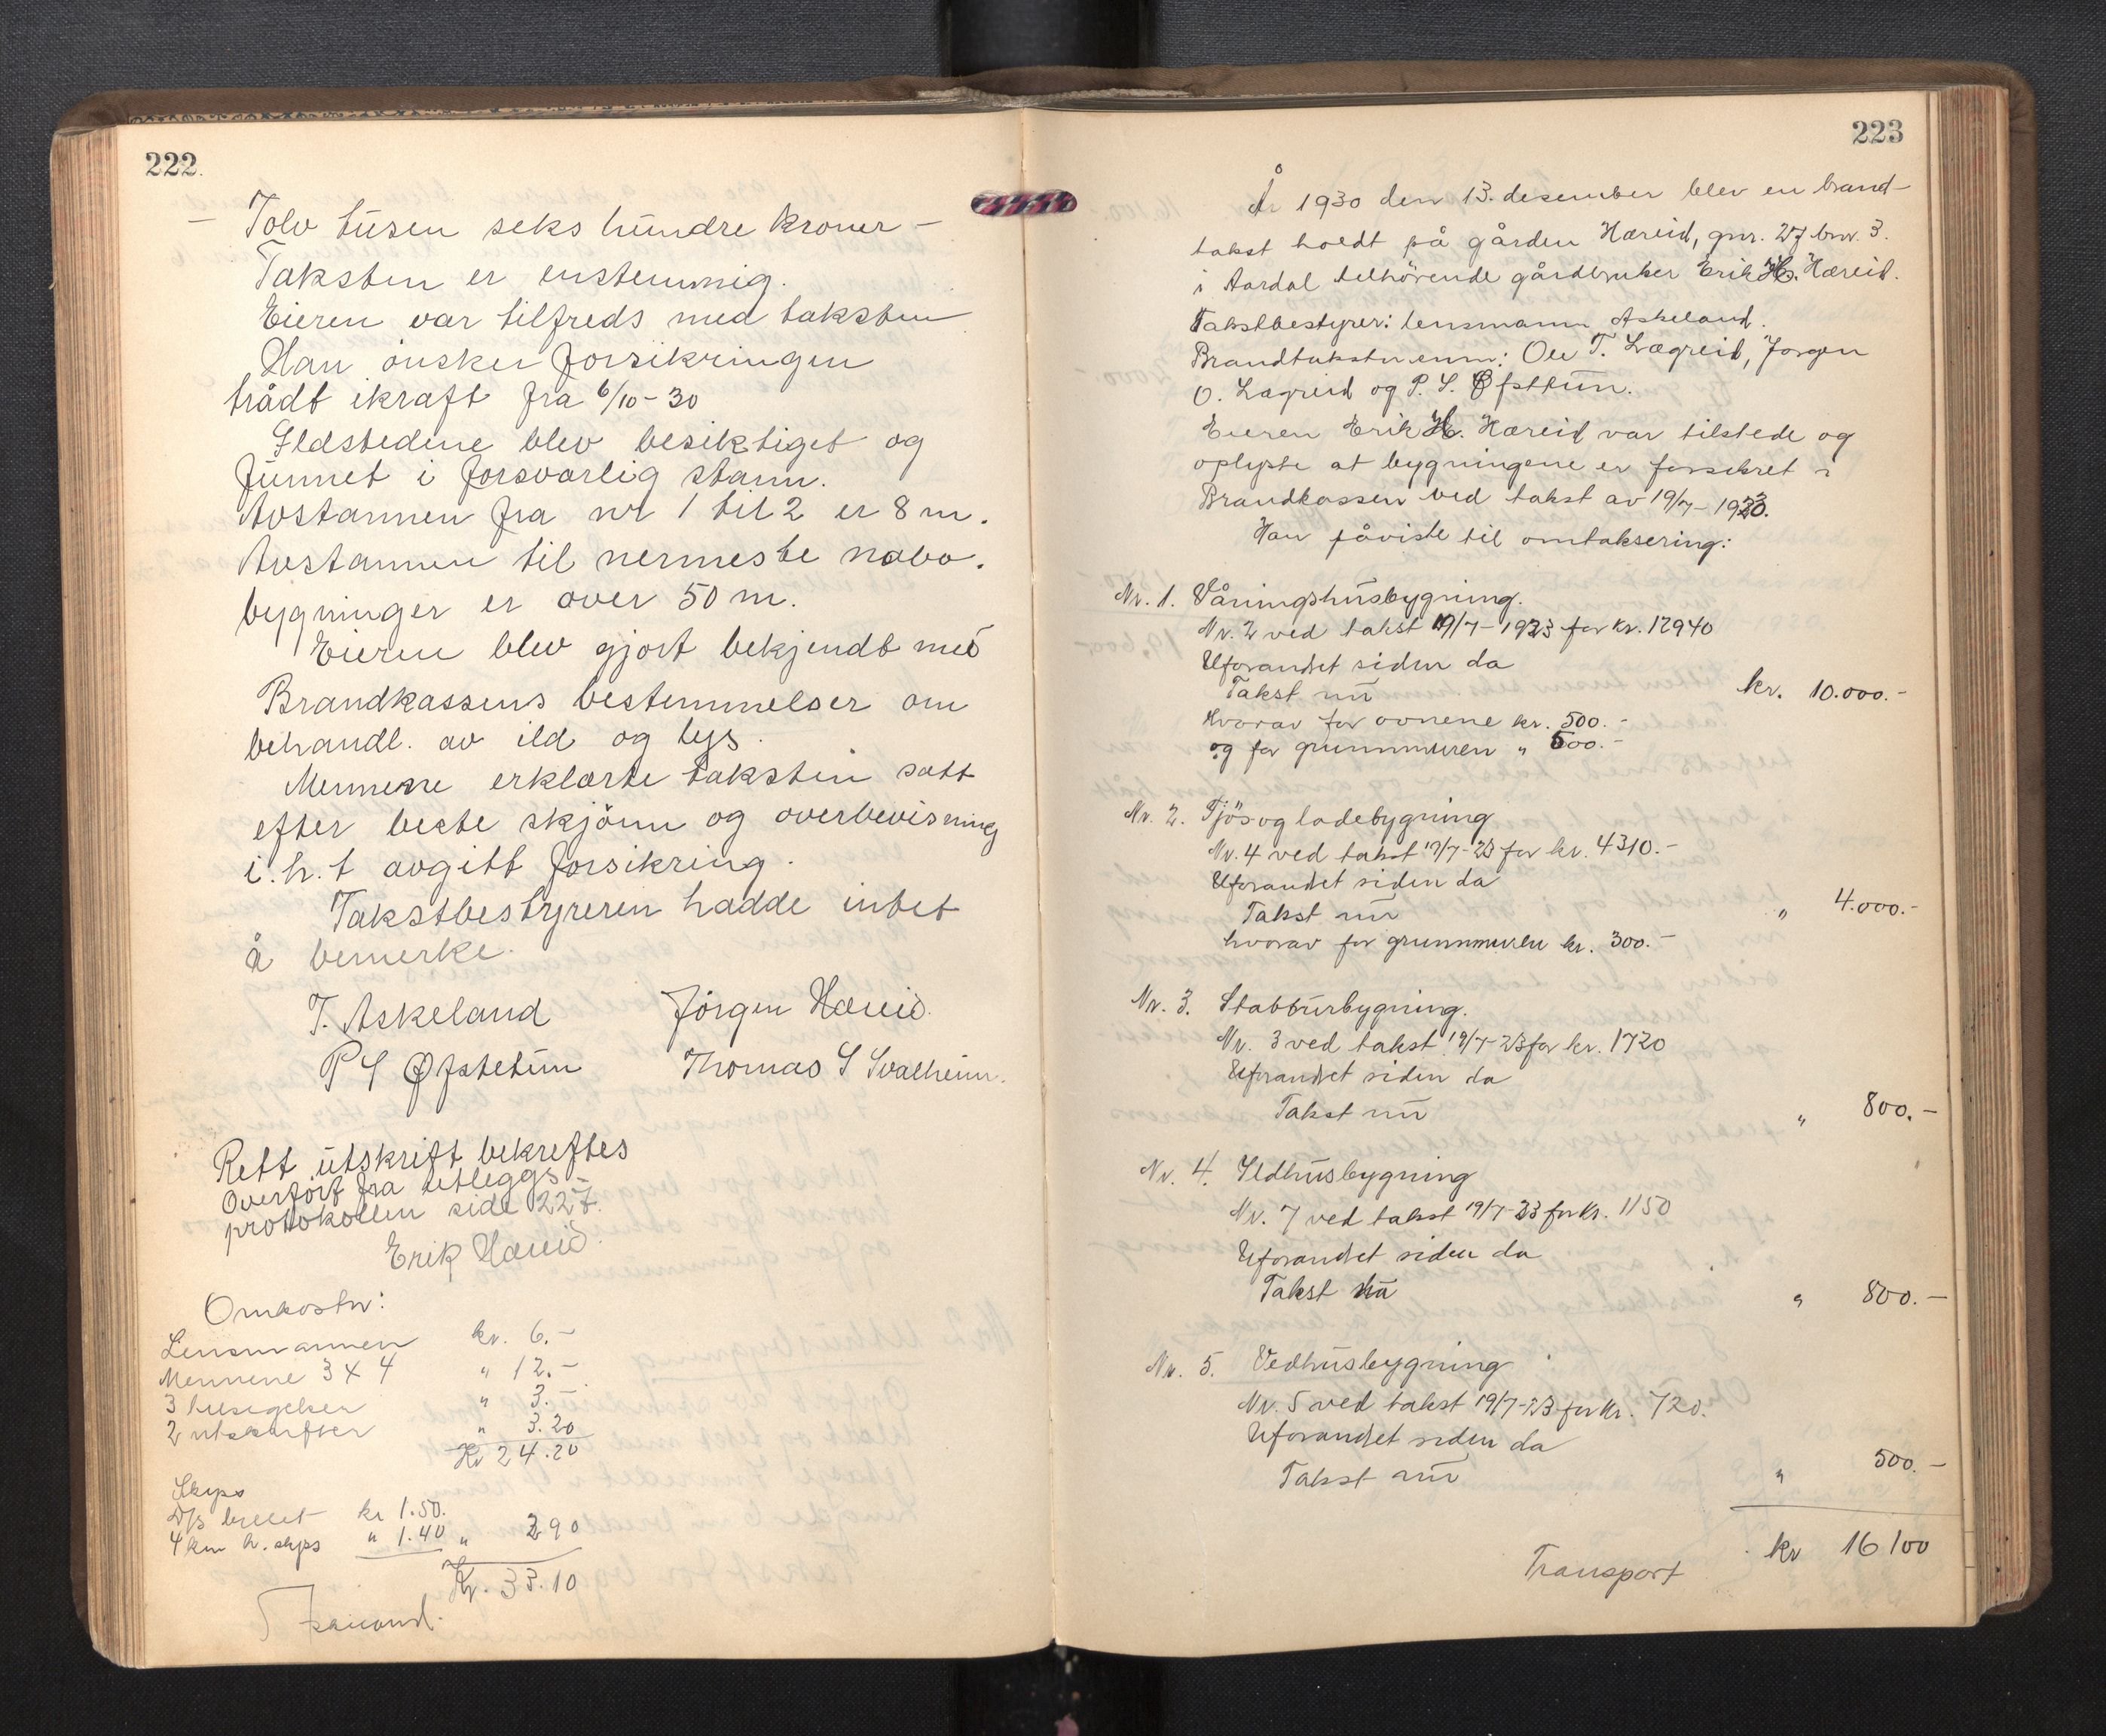 222.
— Tolv tusen seks hundre kroner —
Taksten er enstemmig.
Eieren var tilfreds med taksten
Han önsker forsikringen
trådt ikraft fra 6/10-30
Ildstedene blev besiktiget og
funnet i forsvarlig stann.
Avstannen fra nr 1 til 2 er 8 m.
Avstannen til nermeste nabo.
bygninger er over 50 m.
Eieren blev gjort bekjendt med
Brandkassens bestemmelser om
behandl. av ild og lys.
Mennene erklærte taksten satt
efter beste skjönn og overbevisning
i.h.t avgitt forsikring.
Takstbestyreren hadde intet
å bemerke.
T. Askeland Jörgen Hæreid.
P S Øfstetun Thomas S Svalheim.
Rett utskrift bekreftes
Overfört fra utleggs-
protokollen side 227.
Erik Hæreid.
Omkostn:
Lensmannen kr. 6.-
Mennene 3 x 4 " 12.-
3 tilsigelser " 3.-
2 utskrifter " 3.20
Kr 24.20
Skyss
D/s billet kr 1.50.
4 km h. skyss " 1.40 " 2 90
Kr. 33.10
223
År 1930 den 13. desember blev en brand-
takst holdt på gården Hæreid, gnr. 27 bnr. 3.
i Aardal tilhörende gårdbruker Erik H. Hæreid.
Takstbestyrer: lensmann Askeland.
Brandtakstmenn: Ole T. Lægreid, Jörgen
O. Lægreid og P. S. Öfsttun.
Eieren Erik H. Hæreid var tilstede og
oplyste at bygningene er forsikret i
Brandkassen ved takst av 19/7-1923.
Han påviste til omtaksering:
Nr. 1. Våningshusbygning.
Nr. 2 ved takst 19/7-1923 for kr. 12940
Uforandret siden da
Takst nu kr. 10.000.-
Hvorav for ovnene kr. 500.-
og for grunnmuren " 500.-
Nr. 2. Fjös og ladebygning
Nr. 4 ved takst 19/7-23 for kr. 4310.-
Uforandret siden da
Takst nu " 4.000.-
hvorav for grunnmuren kr. 300.-
Nr. 3. Stabbursbygning.
Nr. 3 ved takst 19/7-23 for kr. 1720
Uforandret siden da
Takst nu " 800.-
Nr. 4. Ildhusbygning
Nr. 7 ved takst 19/7-23 for kr. 1150
Uforandret siden da
Takst nu " 800.-
Nr. 5. Vedhusbygning
Nr. 5 ved takst 19/7-23 for kr. 720.
Uforandret siden da
Takst nu " 500.-
Transport kr 16 100